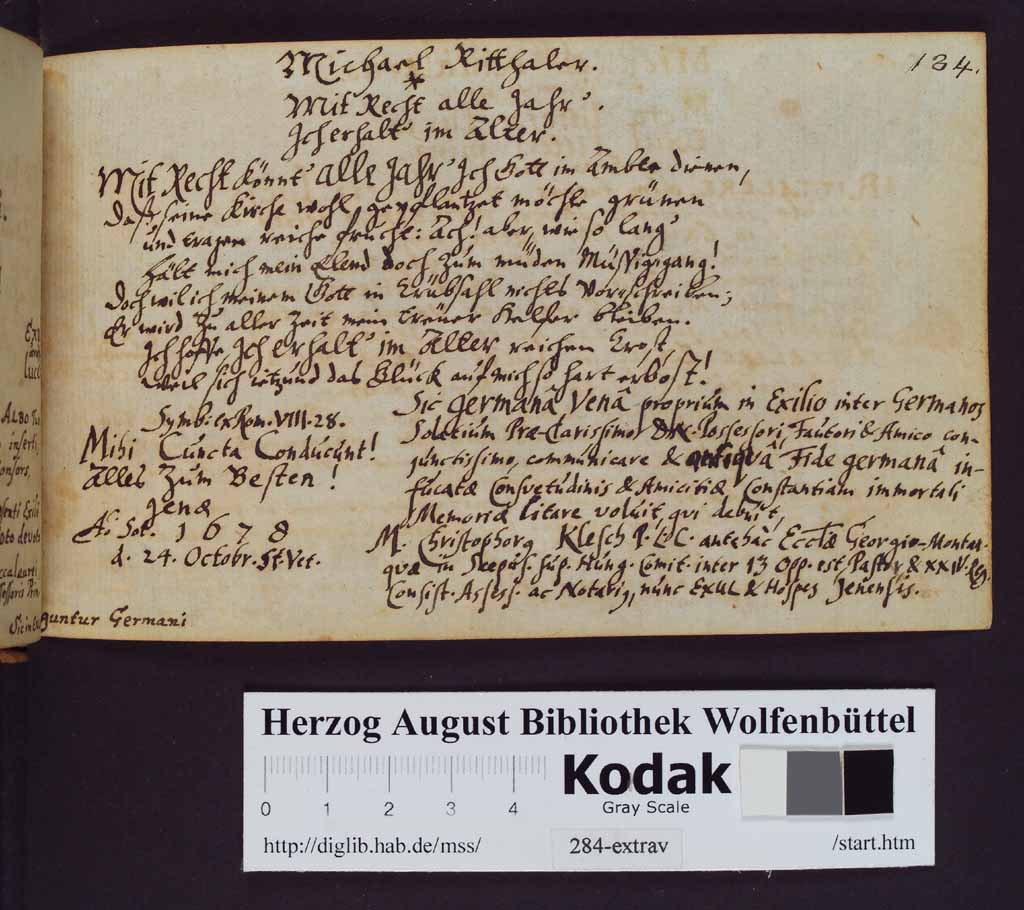 134.
Michael Ritthaler.
*
Mit Recht alle Jahr.
Ich erhalt im Alter.
Mit Recht könnt alle Jahr Ich Gott im Ambte dienen,
Daß seine Kirche wohl gepflantzet möchte grünen
und tragen reiche frucht: Ach! aber, wie so lang
hält mich mein Elend doch zum müden Müssiggang!
Doch wil ich meinem Gott in Trübsahl nichts vorschreiben;
Er wird zu aller Zeit mein treuer Helfer bleiben.
Ich hoffe, Ich erhalt im Alter reichen Trost,
weil sich ietzund das Glück auf mich so hart erbost!
Symb. ex Rom. VIII. 28.
Mihi Cuncta Conducunt!
Alles Zum Besten!
Jenæ
Aō Sot. 1678
d. 24. Octobr. St. Vet.
Sic germanâ Venâ proprium in Exilio inter Germanos
Solatium Præ-Clarissimo Possessori, Fautori & Amico con-
junctissimo, communicare & antiquâ Fide germanâ in-
fucatæ Consvetudinis & Amicitiæ Constantiam immortali
Memoriæ litare voluit, qvi debuit,
M. Christophorq Klesch P. L. C. antehâc Ecclæ Georgio-Montan.
quæ in Scepus. sup. Hung. Comit. inter 13 Opp. est Pastor & XXIV. Reg.
Consist. Assess. ac Notariq, nunc EXUL & Hospes Jenensis.
guntur Germani
Herzog August Bibliothek Wolfenbüttel
0 1 2 3 4
Kodak
Gray Scale
http://diglib.hab.de/mss/ 284-extrav /start.htm